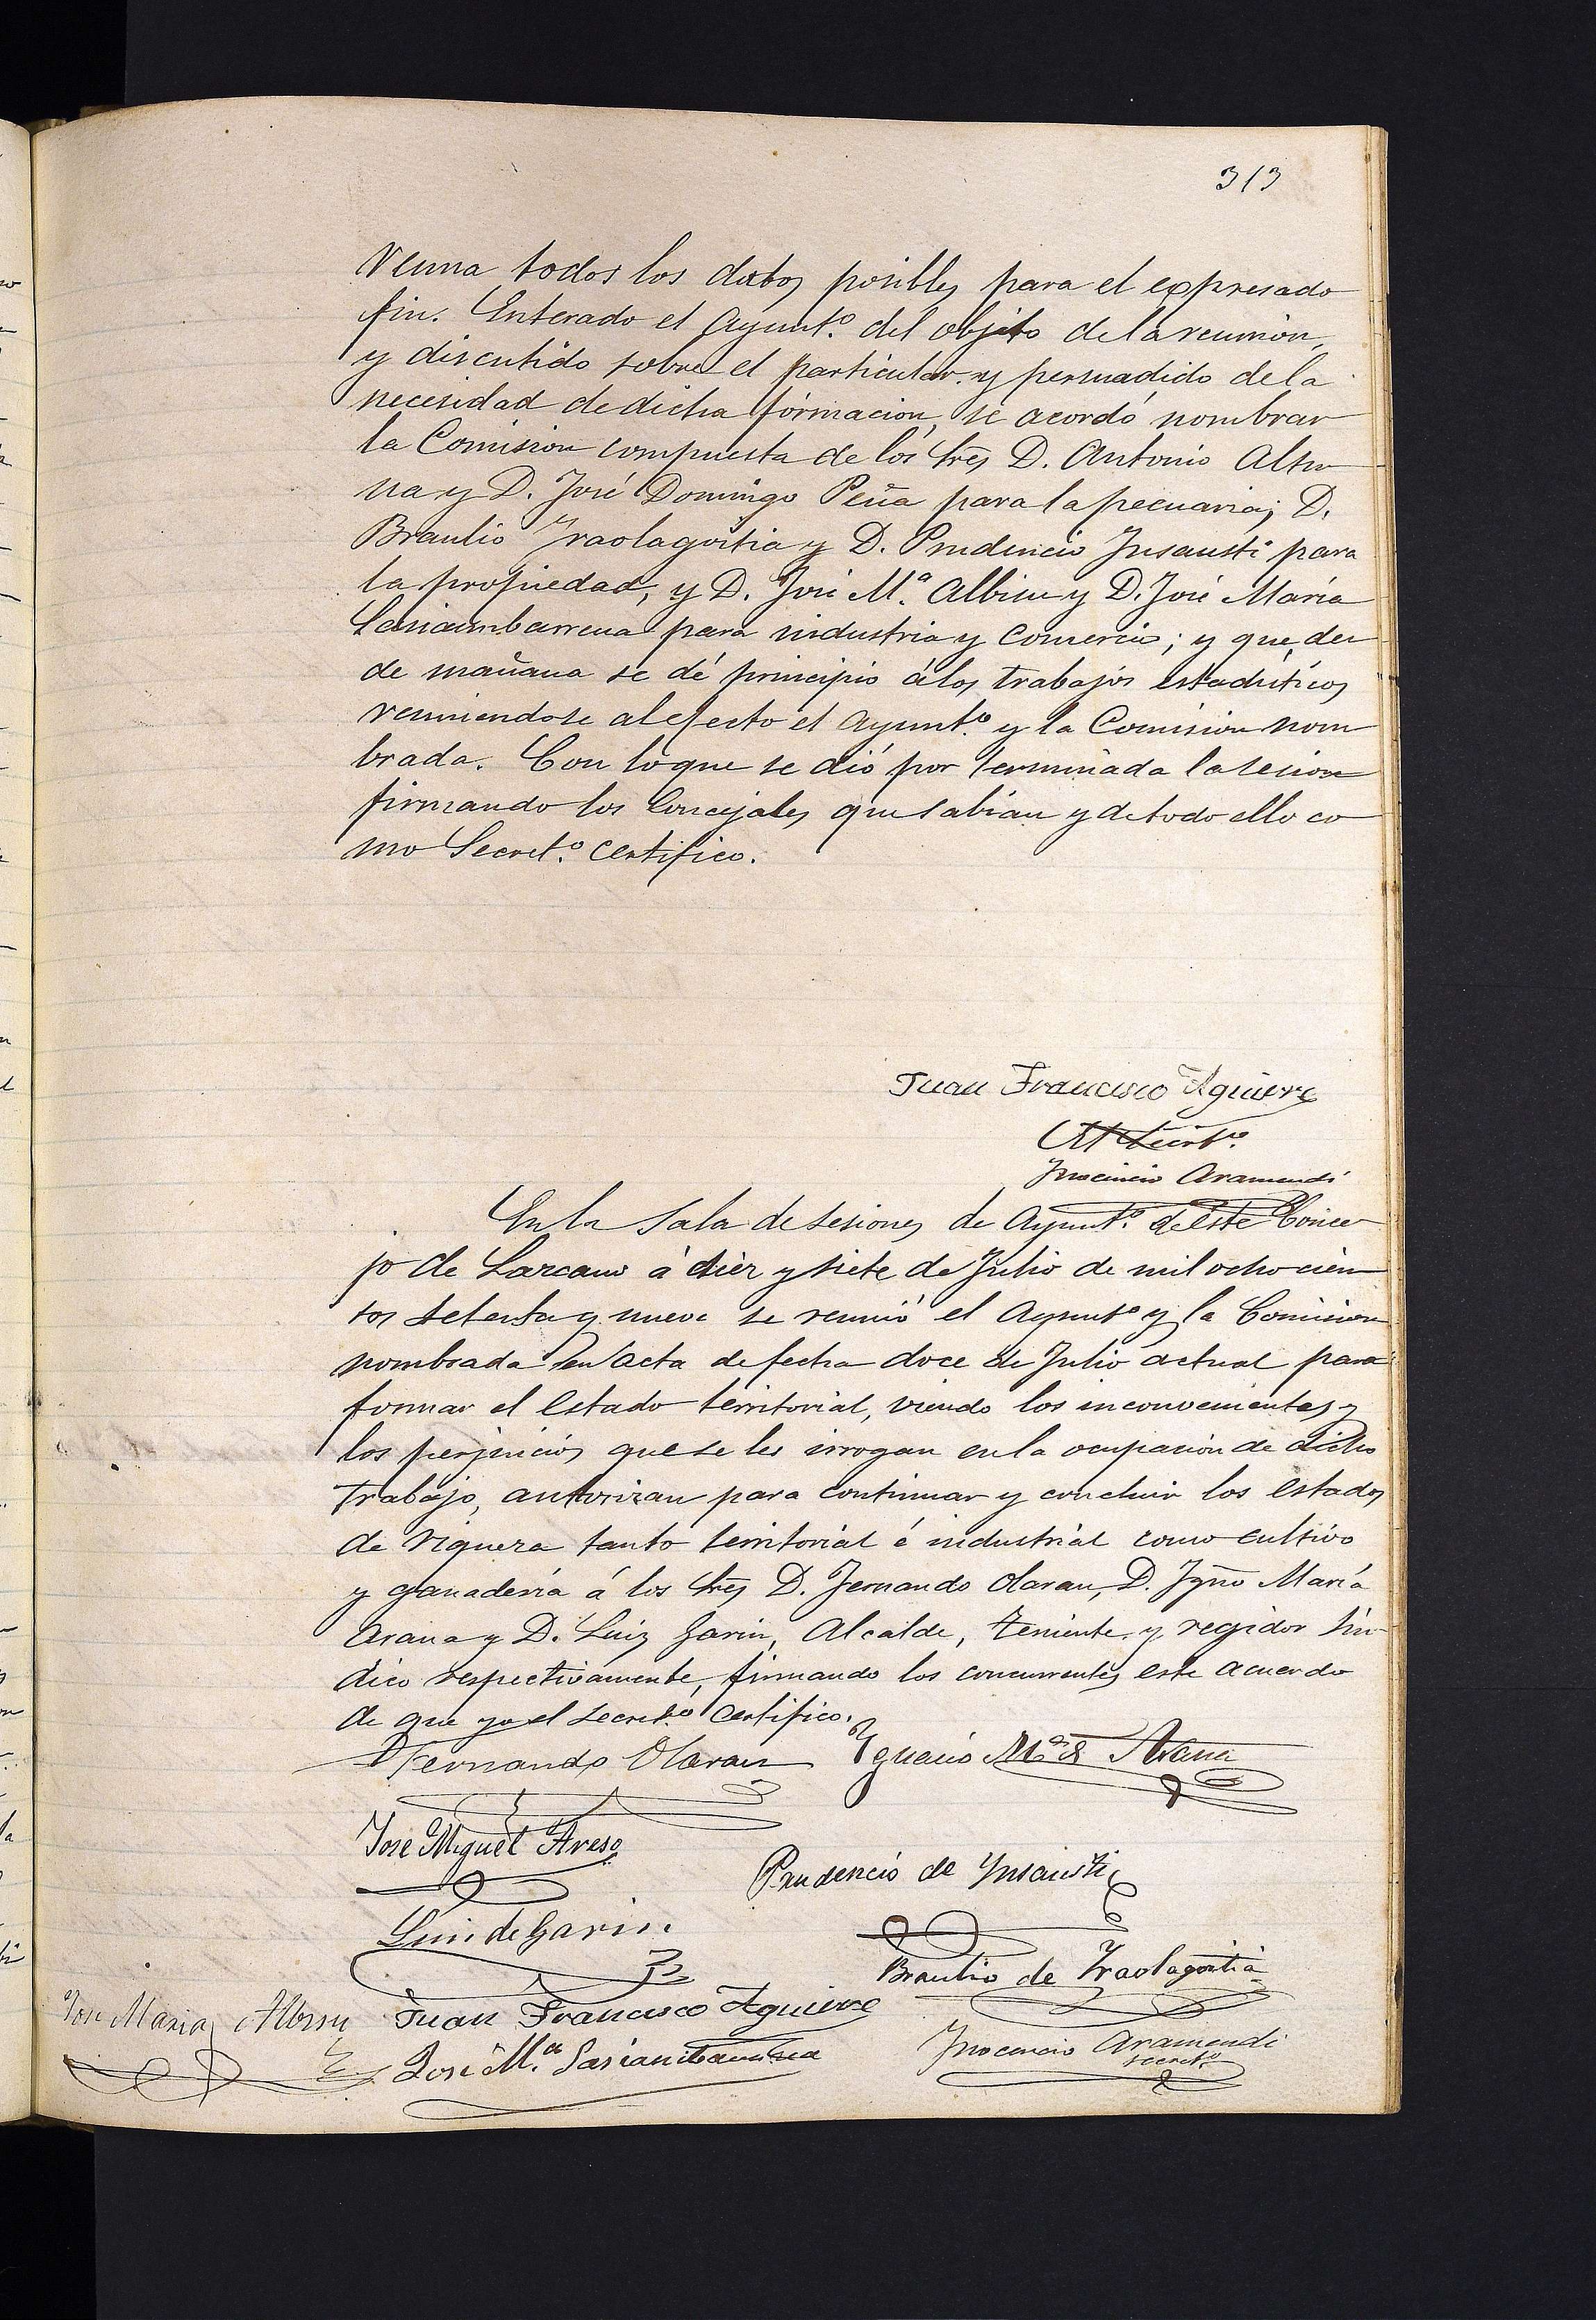 313
reuna todos los datos posibles para el expresado
fin. Enterado el Ayunt.º del objeto de la reunion,
y discutido sobre el particular y persuadido de la
necesidad de dicha formacion, se acordó nombrar
la Comision compuesta de los Sres D. Antonio Altu
na y D. José Domingo Peña para la pecuaria; D.
Braulio Yraolagoitia y D. Prudencio Insausti para
la propiedad, y D. José M.ª Albisu y D. José María
Sasiambarrena para industria y Comercio; y que des
de mañana se dé principio á los trabajos estadísticos
reuniendose al efecto el Ayunt.º y la Comision nom
brada. Con lo que se dió por terminada la sesion
firmando los Concejales que sabian y de todo ello co
mo Secret.º Certifico.
Juan Francisco Aguirre
Inocencio Aramendi
En la Sala de sesiones de Ayunt.º de este Conce
jo de Lazcano á diez y siete de Julio de mil ochocien
tos setenta y nueve se reunió el Ayunt.º y la Comision
nombrada en acta de fecha doce de Julio actual para
formar el estado territorial, viendo los inconvenientes y
los perjuicios que se les irrogan en la ocupacion de dicho
trabajo, autorizan para continuar y concluir los estados
de riqueza tanto territorial é industrial como cultivo
y ganadería á los Sres D. Fernando Olaran, D. Ygno María
Arana y D. Luiz Garin, Alcalde, teniente y regidor sín
dico respectivamente, firmando los concurrentes este acuerdo
de que yo el secret.º Certifico.
Fernando Olaran Ygnacio M.ª de Arana
José Miguel Areso
Prudencio de Ynsausti
Luis de Garin
Braulio de Yraolagoitia
José Maria Albisu Juan Francisco Aguirre
José M.ª Sasiambarrena
Inocencio Aramendi
secret.º